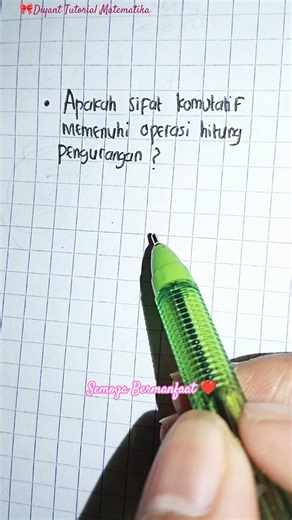 🎀Diyant Tutorial Matematika
• Apakah sifat komutatif
memenuhi operasi hitung
pengurangan ?
Semoga Bermanfaat ❤️